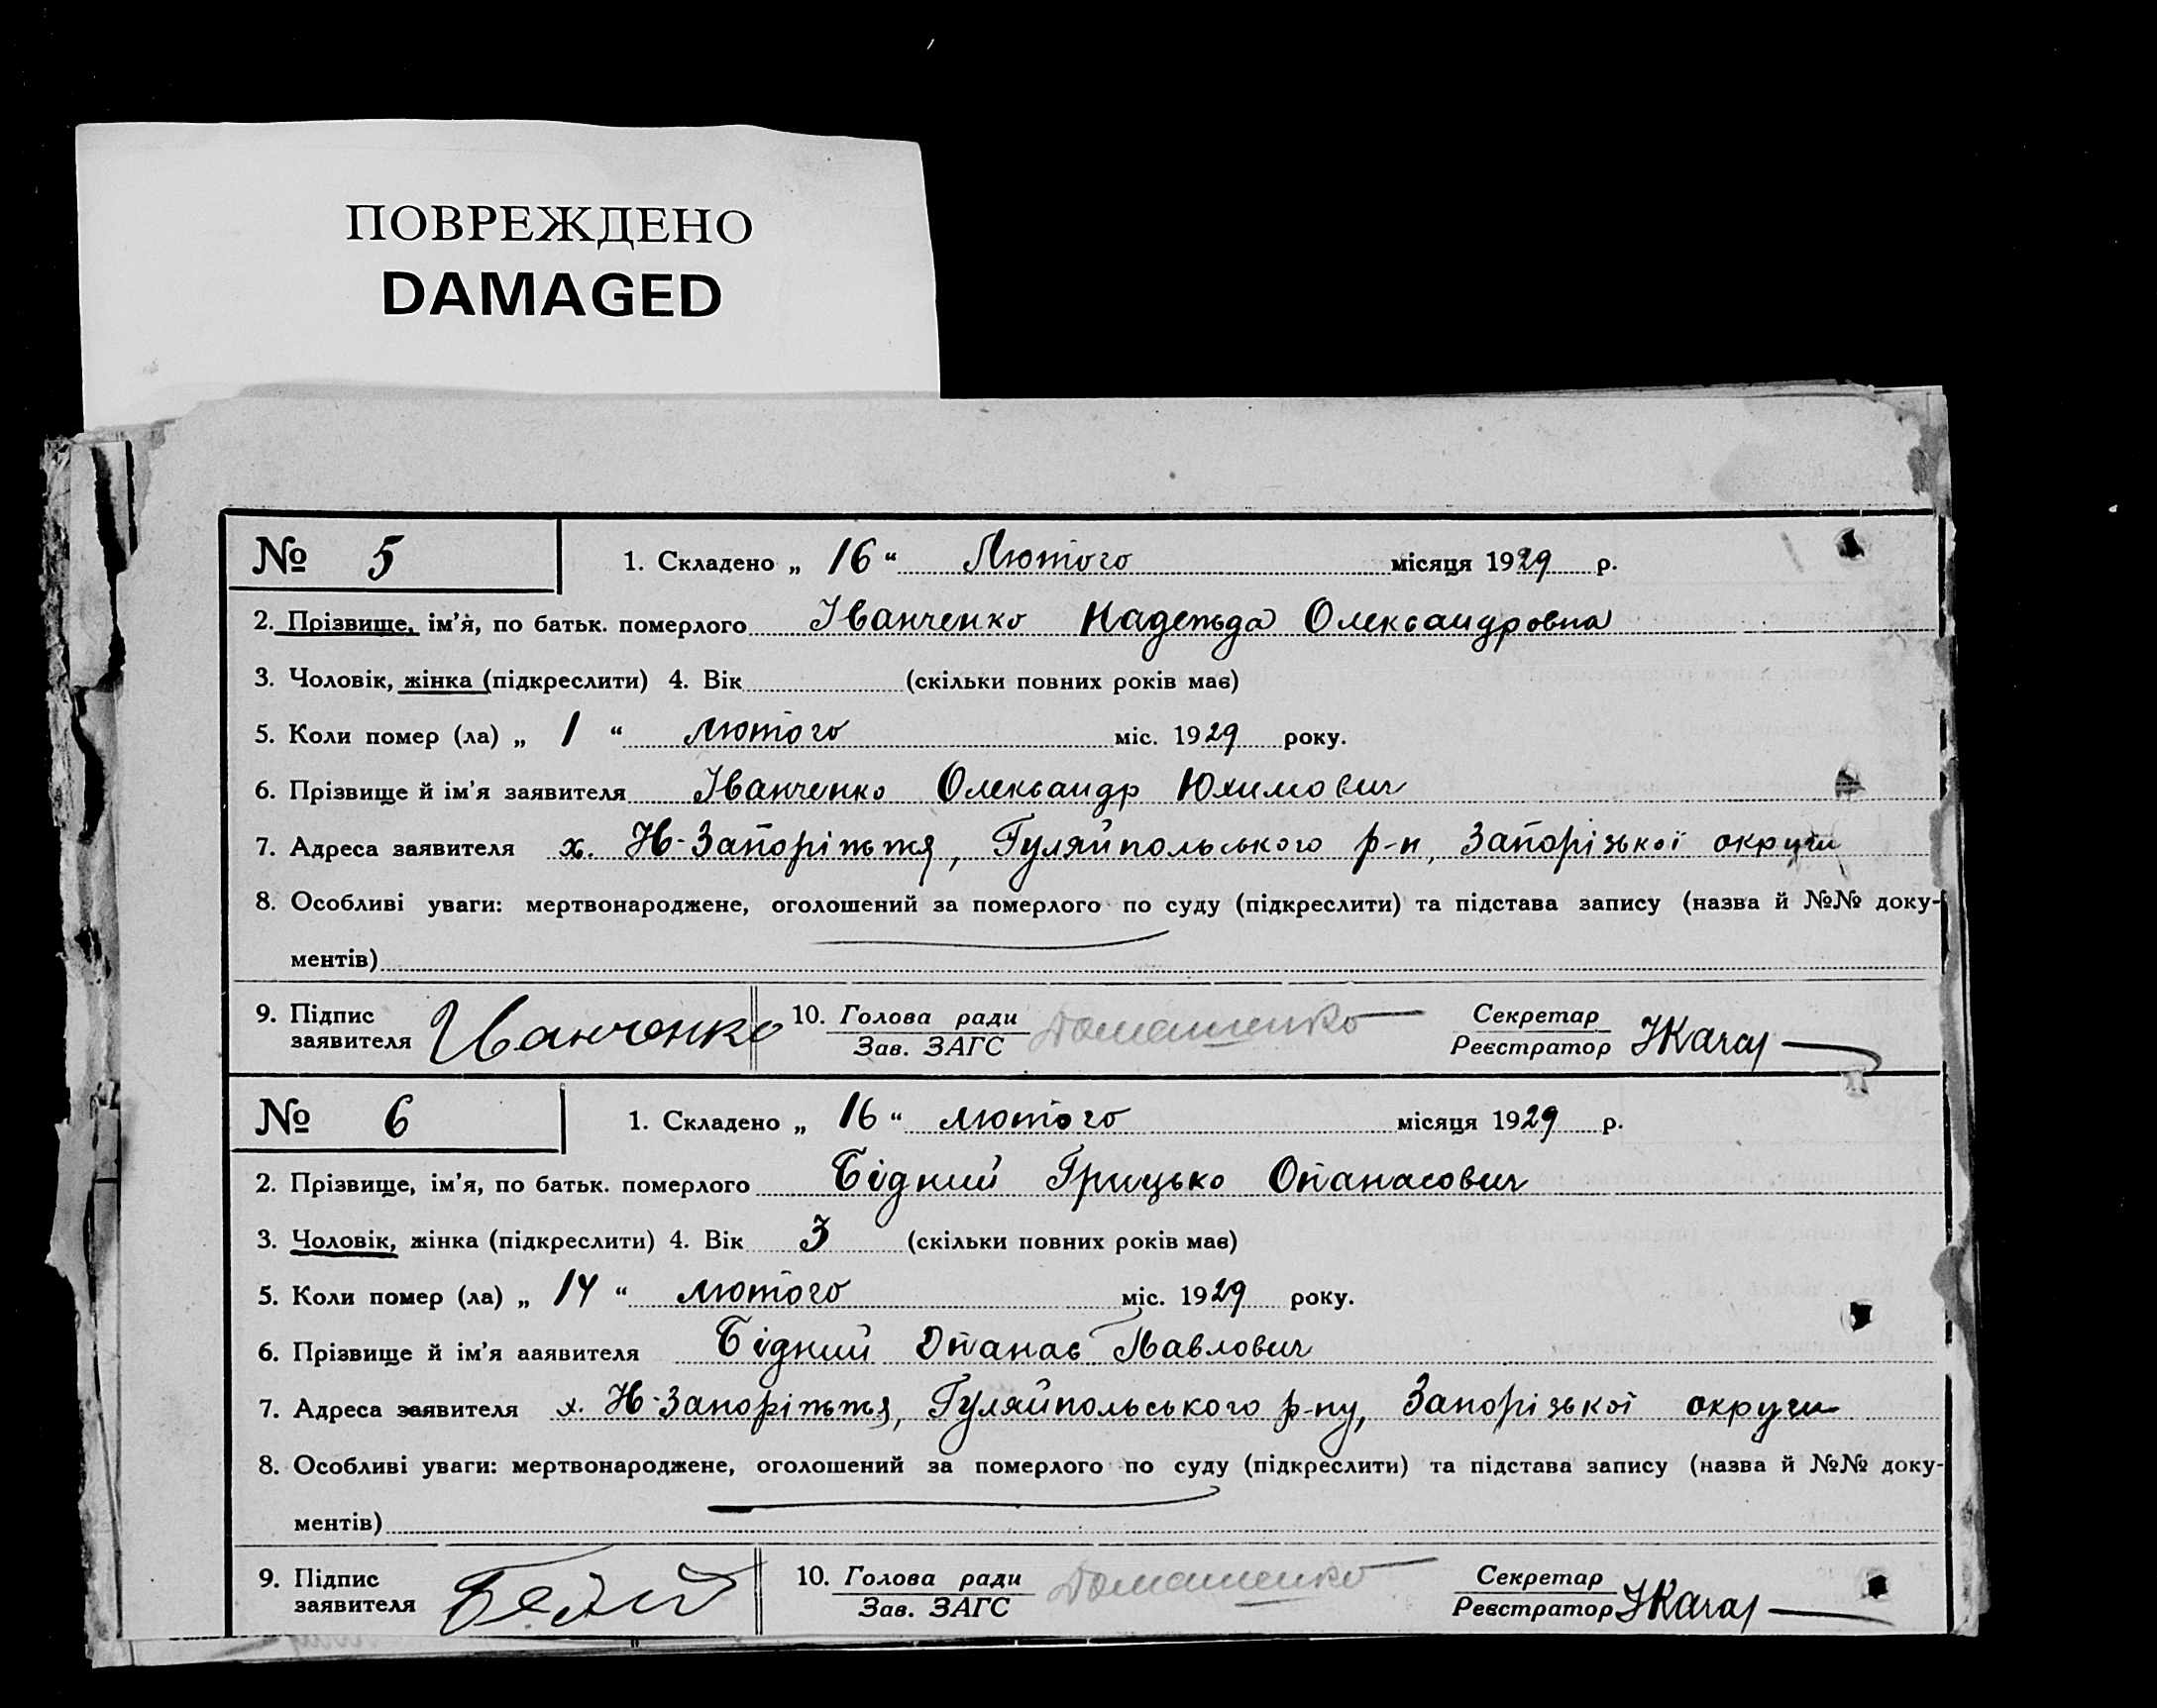 ПОВРЕЖДЕНО
DAMAGED
№ 5 1. Складено „ 16 “ Лютого місяця 1929 р.
2. Прізвище, ім’я, по батьк. померлого Іванченко Надежда Олександровна
3. Чоловік, жінка (підкреслити) 4. Вік (скільки повних років має)
5. Коли помер (ла) „ 1 “ лютого міс. 1929 року.
6. Прізвище й ім’я заявителя Іванченко Олександр Юхимович
7. Адреса заявителя х. Н-Запоріжжя, Гуляйпольського р-н, Запорізької округи
8. Особливі уваги: мертвонароджене, оголошений за померлого по суду (підкреслити) та підстава запису (назва й №№ доку-
ментів)
9. Підпис заявителя Иванченко 10. Голова ради Зав. ЗАГС Домашенко Секретар Реєстратор
№ 6 1. Складено „ 16 “ лютого місяця 1929 р.
2. Прізвище, ім’я, по батьк. померлого Бідний Грицько Опанасович
3. Чоловік, жінка (підкреслити) 4. Вік 3 (скільки повних років має)
5. Коли помер (ла) „ 14 “ лютого міс. 1929 року.
6. Прізвище й ім’я ааявителя Бідний Опанас Павлович
7. Адреса заявителя х. Н-Запоріжжя, Гуляйпольського р-ну, Запорізької округи
8. Особливі уваги: мертвонароджене, оголошений за померлого по суду (підкреслити) та підстава запису (назва й №№ доку-
ментів)
9. Підпис заявителя 10. Голова ради Зав. ЗАГС Домашенко Секретар Реєстратор